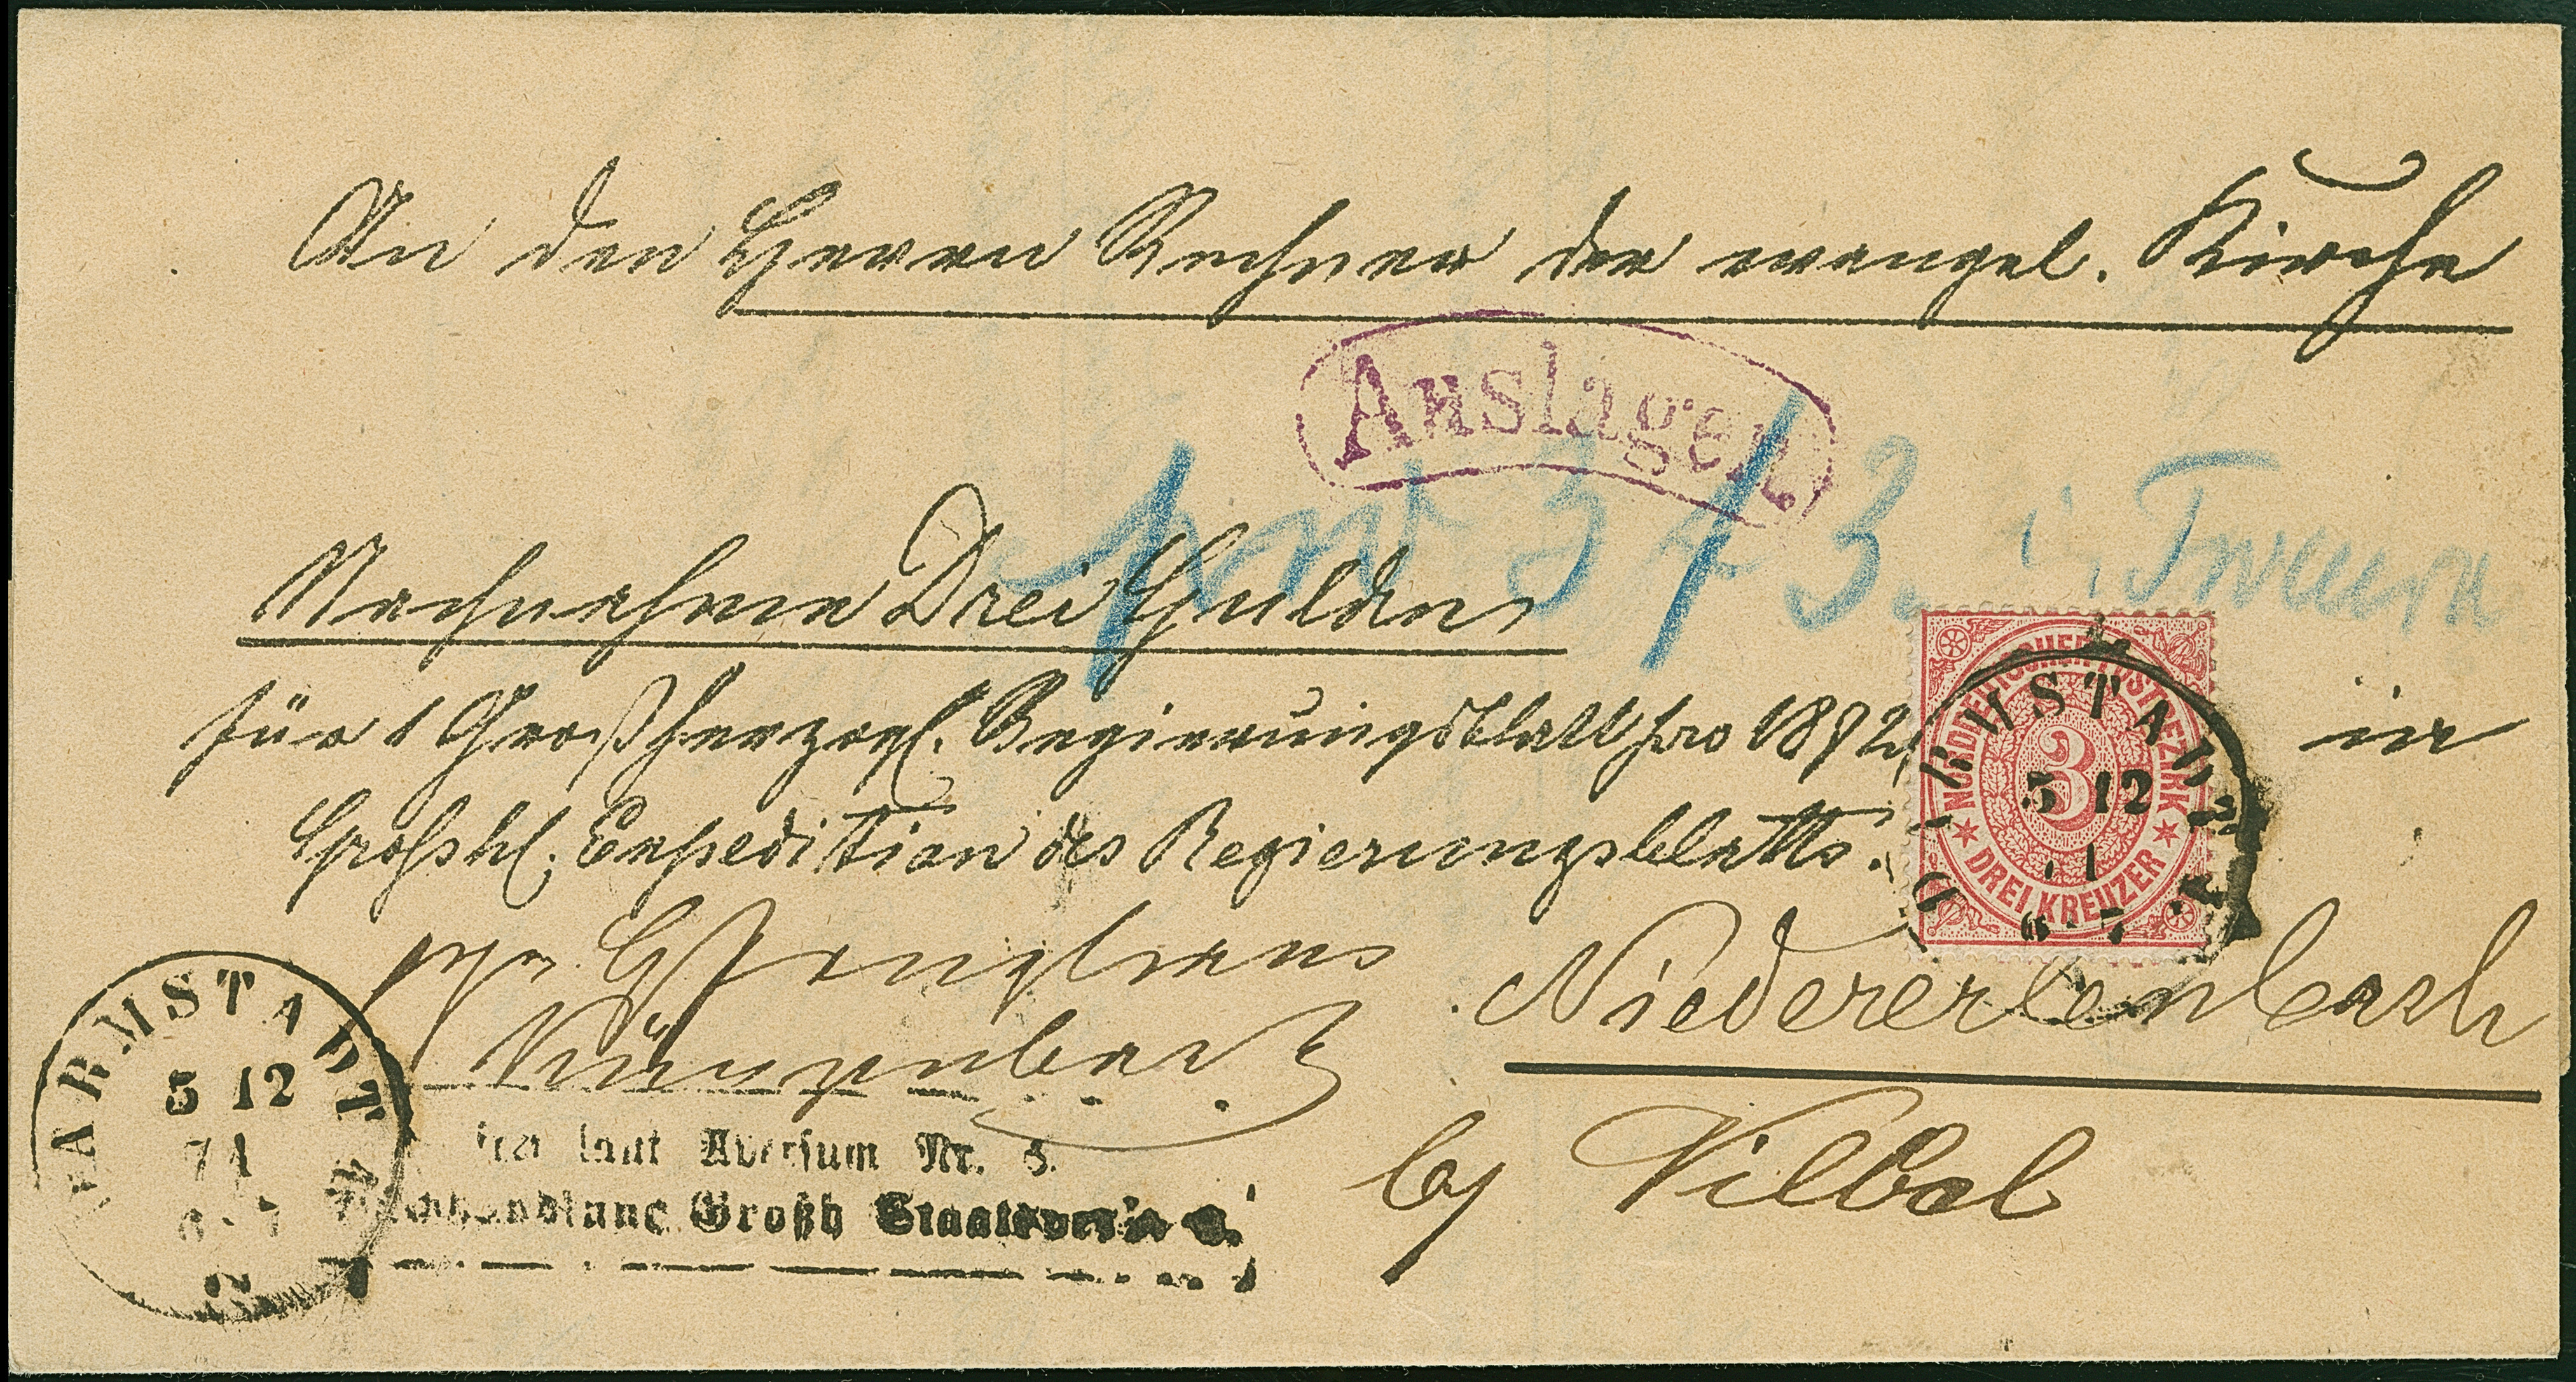 An den Herrn Rechner der evangel. Kirche
Auslagen.
3 f 3
Nachnahme Drei Gulden
für 1 Großherzogl. Regierungsblatt pro 1872
in
Großhl. Expedition des Regierungsblatts.
NORDDEUTSCHER POSTBEZIRK
3
DREI KREUZER
DARMSTADT
5 12
Niedererlenbach
by Vilbel
DARMSTADT
5 12
71
6-7
frei laut Aversum Nr. 3.
Großh